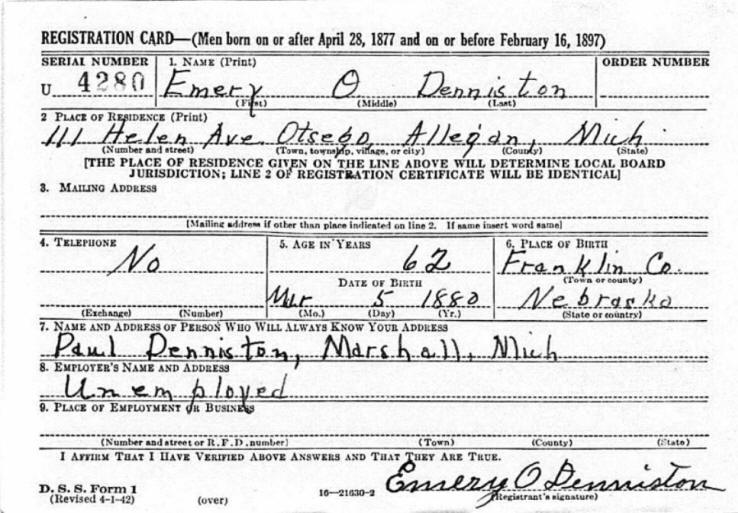 REGISTRATION CARD—(Men born on or after April 28, 1877 and on or before February 16, 1897)
SERIAL NUMBER 1. NAME (Print) ORDER NUMBER
U 4280 Emery O Denniston
(First) (Middle) (Last)
2 PLACE OF RESIDENCE (Print)
111 Helen Ave Otsego, Allegan, Mich
(Number and street) (Town, township, village, or city) (County) (State)
[THE PLACE OF RESIDENCE GIVEN ON THE LINE ABOVE WILL DETERMINE LOCAL BOARD
JURISDICTION; LINE 2 OF REGISTRATION CERTIFICATE WILL BE IDENTICAL]
3. MAILING ADDRESS
[Mailing address if other than place indicated on line 2. If same insert word same]
4. TELEPHONE 5. AGE IN YEARS 6. PLACE OF BIRTH
No 62 Franklin Co.
DATE OF BIRTH (Town or county)
Mar 5 1880 Nebraska
(Exchange) (Number) (Mo.) (Day) (Yr.) (State or country)
7. NAME AND ADDRESS OF PERSON WHO WILL ALWAYS KNOW YOUR ADDRESS
Paul Denniston, Marshall, Mich
8. EMPLOYER'S NAME AND ADDRESS
Unemployed
9. PLACE OF EMPLOYMENT OR BUSINESS
(Number and street or R.F.D. number) (Town) (County) (State)
I AFFIRM THAT I HAVE VERIFIED ABOVE ANSWERS AND THAT THEY ARE TRUE.
Emery O Denniston
D. S. S. Form 1
(Revised 4-1-42) (over) 16—21630-2 (Registrant's signature)